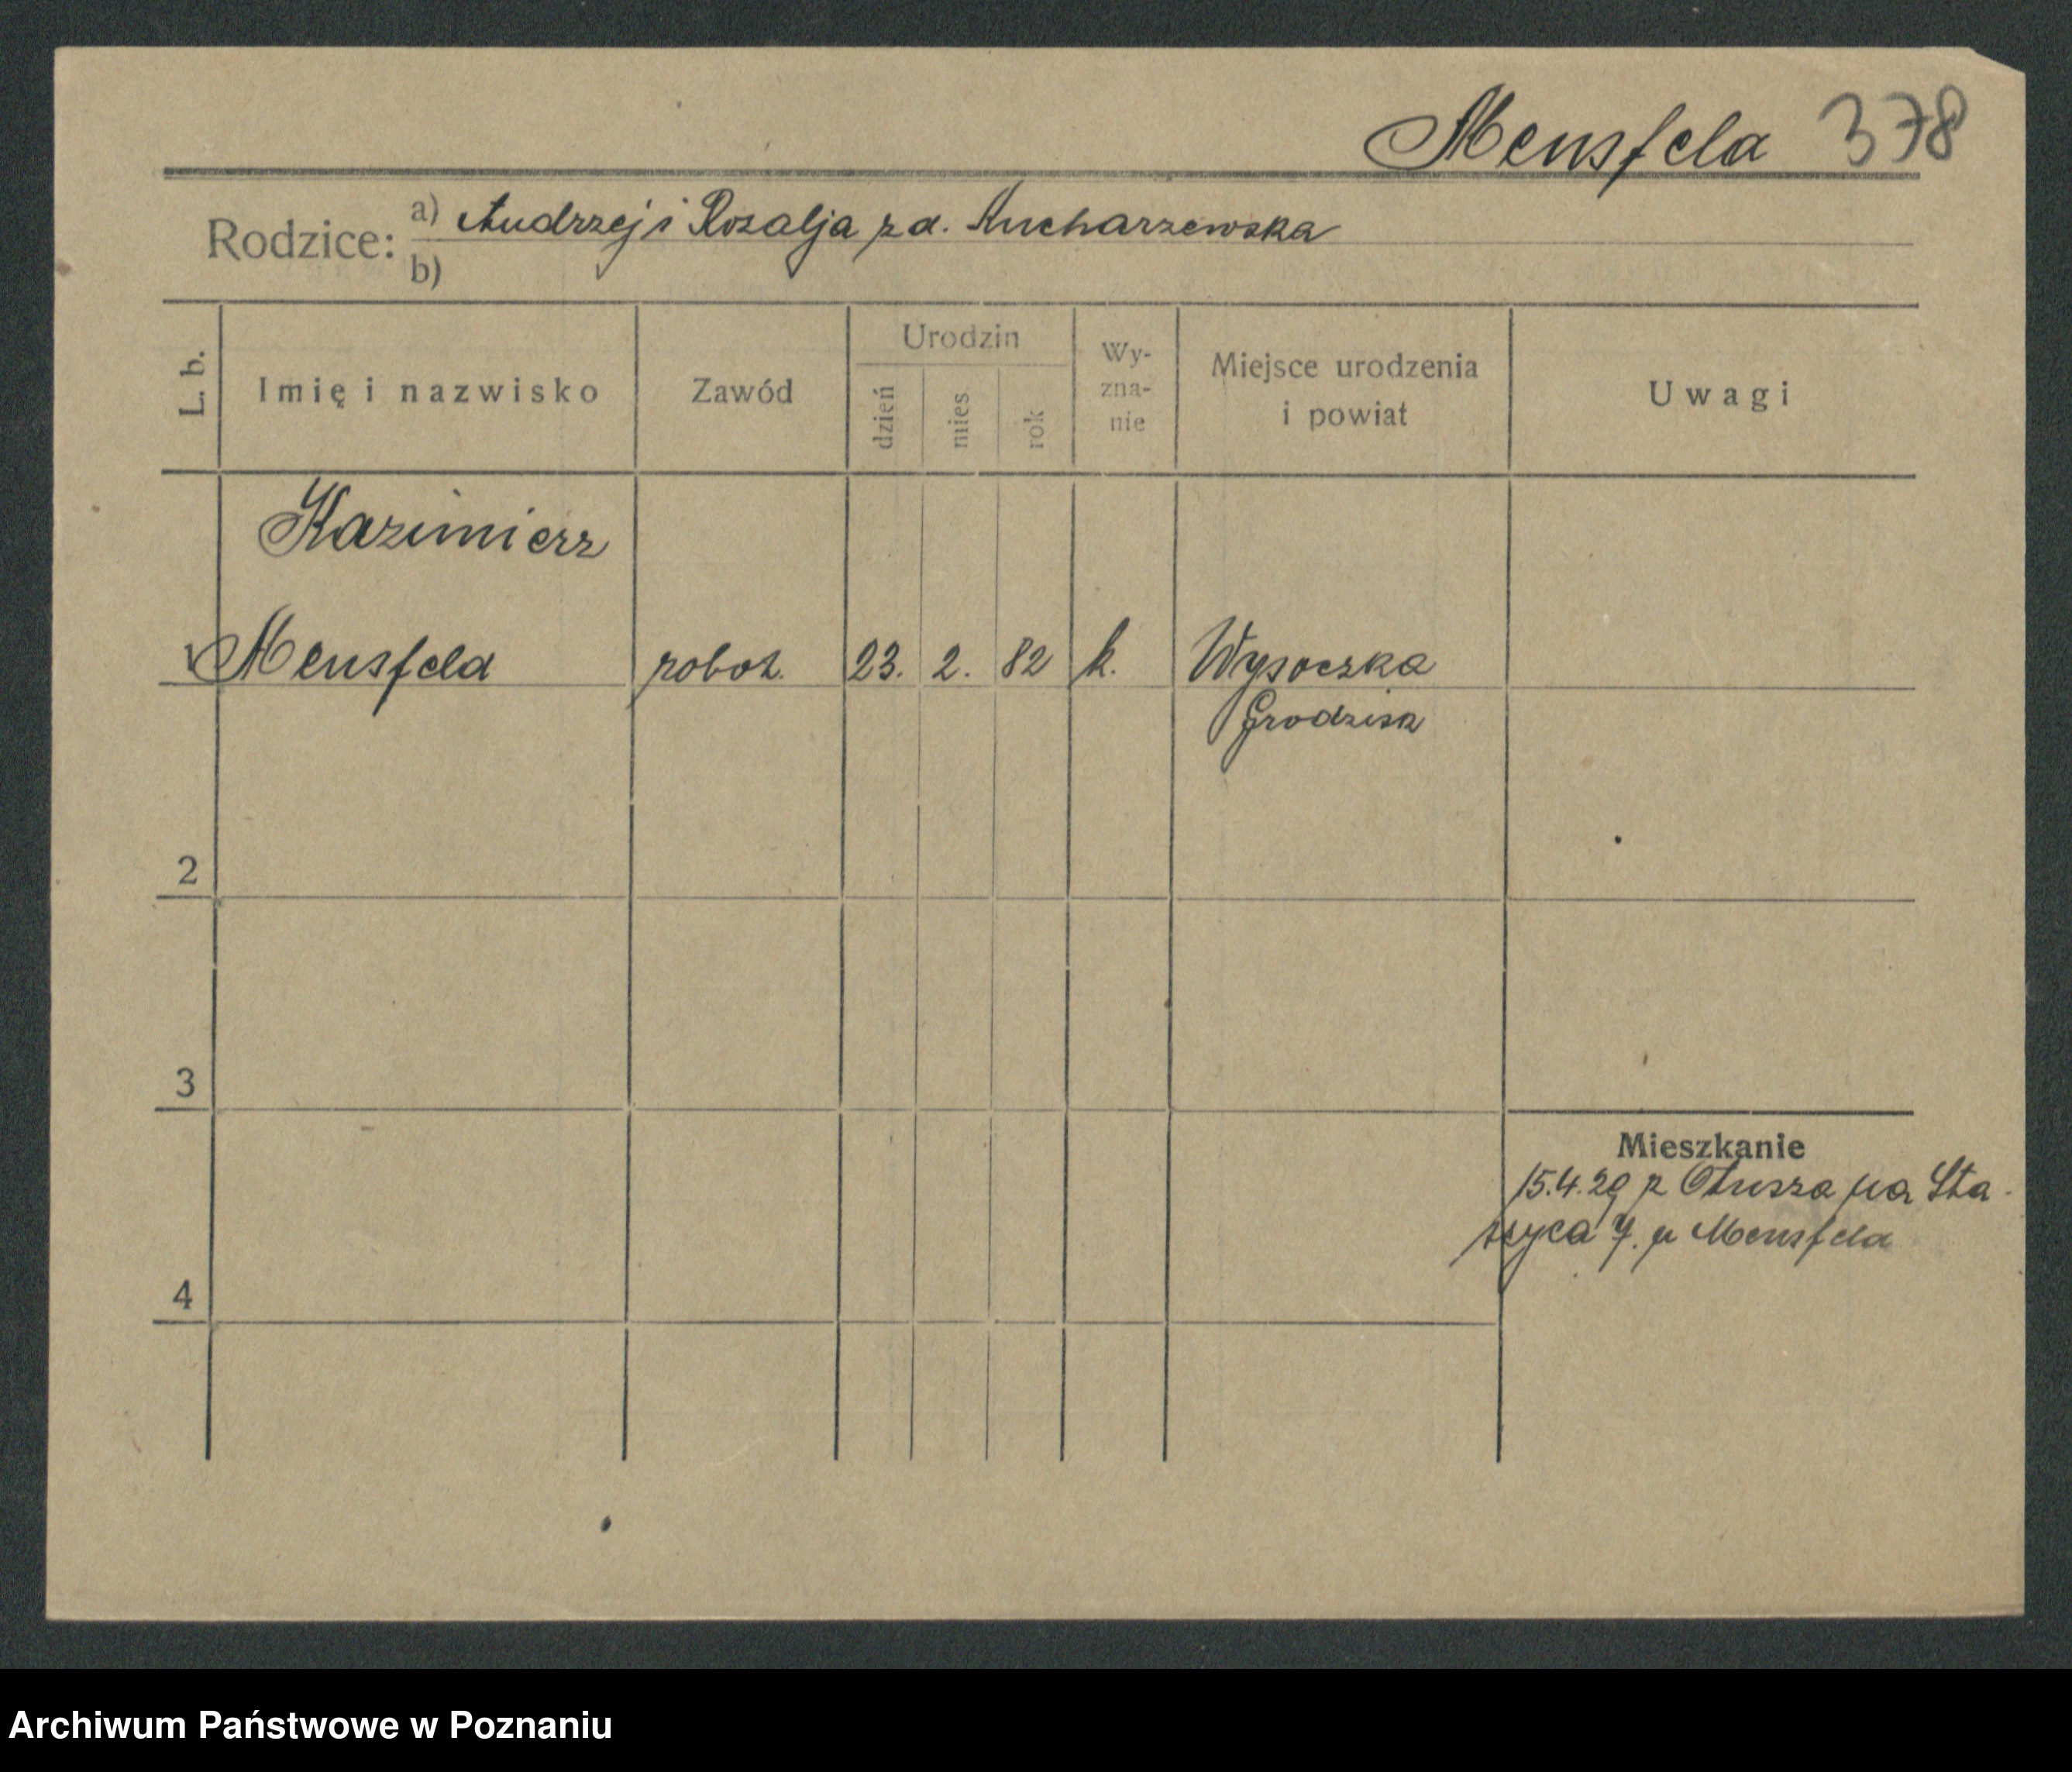 Mensfeld 378
Rodzice: a) Andrzej i Rozalja zd. Kucharzewska
b)
L. b. Imię i nazwisko Zawód Urodzin dzień mies. rok Wy-zna-nie Miejsce urodzenia i powiat Uwagi
Kazimierz
1 Mensfeld robot. 23. 2. 82 k. Wysoczka
Grodzisk
2
3
Mieszkanie
15.4.29 z Otusza na Sta-
szyca 7. u Mensfeld
4
Archiwum Państwowe w Poznaniu